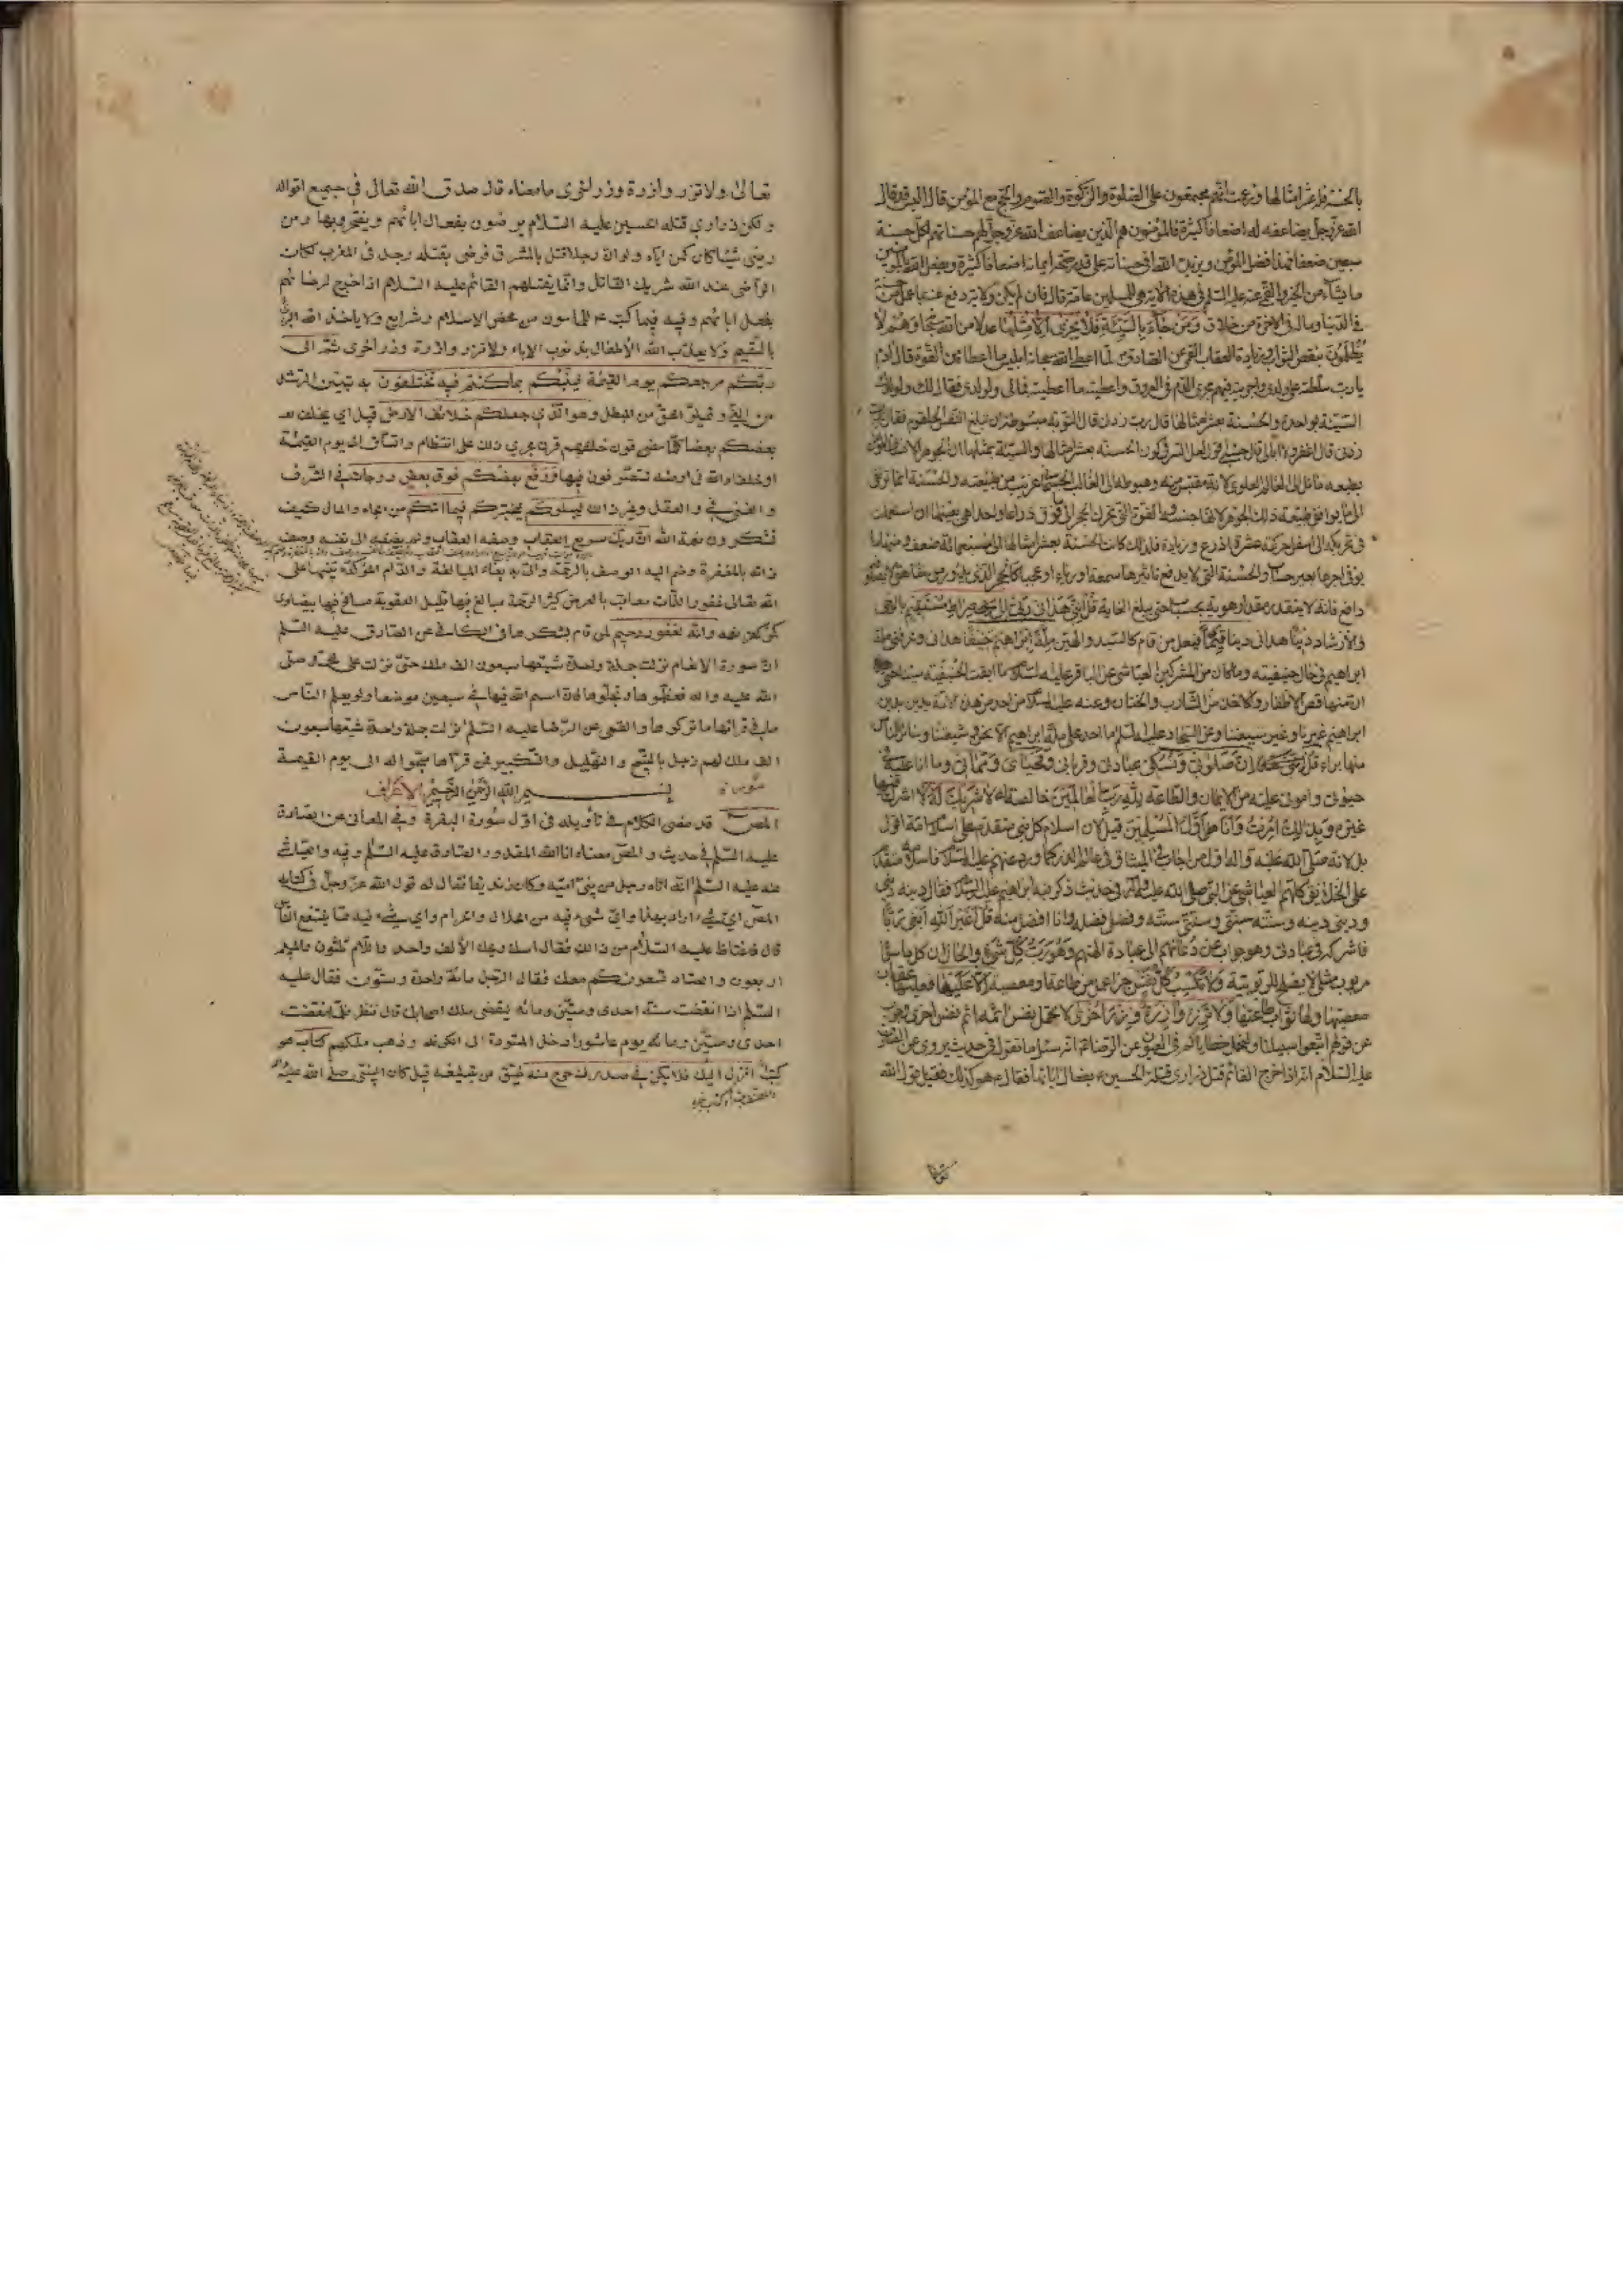 بالحسنة فله عشر أمثالها وزعمت انهم مجتمعون على الصلوة والزكوة والصوم والحج مع المؤمن قال اليس قد قال
الله عز وجل يضاعفه له اضعافا كثيرة فالمؤمنون هم الذين يضاعف الله عز وجل لهم حسناتهم لكل حسنة
سبعين ضعفا فهذا فضل المؤمن ويزيد الله في حسناته على قدر صحة ايمانه اضعافا كثيرة ويفعل الله بالمؤمنين
ما يشاء من الخير والقمي عنه عليه السلم في هذه الاية هي للمسلمين عامة قال فان لم يكن ولاية دفع عنه بما عمل من حسنة
في الدنيا وماله في الاخرة من خلاق ومن جاء بالسيئة فلا يجزى الا مثلها عدلا من الله سبحانه وهم لا
يظلمون بنقص الثواب وزيادة العقاب القمي عن الصادق لما اعطى الله سبحانه ابليس ما اعطاه من القوة قال ادم
يا رب سلطته على ولدي واجريته فيهم مجرى الدم في العروق واعطيته ما اعطيته فما لي ولولدي فقال لك ولولدك
السيئة بواحدة والحسنة بعشر امثالها قال رب زدني قال التوبة مبسوطة الى ان تبلغ النفس الحلقوم فقال يا رب
زدني قال اغفر ولا ابالي قال حسبي قول لعل السر في كون الحسنة بعشر امثالها والسيئة بمثلها ان الجوهر الانساني
بطبعه مائل الى العالم العلوي لانه مقتبس منه وهبوطه الى القالب الجسماني غريب من طبيعته والحسنة انما ترقى
الى ما يوافق طبيعة ذلك الجوهر لانها من جنسه والقوة التي تحرك الحجر الى ما فوق ذراعا واحدا هي بعينها ان استعملت
في تحريكه الى اسفل حركته عشرة اذرع وزيادة فلذلك كانت الحسنة بعشر امثالها الى سبعمائة ضعف ومنها ما
يوفى اجرها بغير حساب والحسنة التي لا يدفع تاثيرها سمعة او رياء او عجب كالحجر الذي
دافع فانه لا يتقدر مقدار هويه بحساب حتى يبلغ الغاية قل انني هداني ربي الى صراط مستقيم بالوحي
والارشاد دينا هداني دينا قيما فيعل من قام كالسيد والهين ملة ابراهيم حنيفا هداني وعرفني ملة
ابراهيم في حال حنيفيته وما كان من المشركين العياشي عن الباقر عليه السلام ما ابقت الحنيفية شيئا حتى
ان منها قص الاظفار والاخذ من الشارب والختان وعنه عليه السلام ما من احد من هذه الامة يدين بدين
ابراهيم غيرنا وغير شيعتنا وعن السجاد عليه السلم ما احد على ملة ابراهيم الا نحن وشيعتنا وسائر الناس
منها براء قل ان صلوتي ونسكي عباداتي وقرباني ومحياي ومماتي وما انا عليه في
حيوتي واموت عليه من الايمان والطاعة لله رب العالمين خالصة له لا شريك له لا اشرك فيها
غيره وبذلك امرت وانا اول المسلمين قيل لان اسلام كل نبي متقدم على اسلام امته اقول
بل لانه صلى الله عليه واله اول من اجاب في الميثاق في عالم الذر كما ورد عنهم عليهم السلام فاسلامه متقدم
على الخلائق كلهم العياشي عن النبي صلى الله عليه واله في حديث ذكر فيه ابراهيم عليه السلام فقال دينه ديني
وديني دينه وسنته سنتي وسنتي سنته وفضلي فضله وانا افضل منه قل اغير الله ابغي ربا
فاشركه في عبادتي وهو جواب عن دعائهم الى عبادة الهتهم وهو رب كل شيء والحال ان كل ما سواه
مربوب مثلي لا يصلح للربوبية ولا تكسب كل نفس جزاء عمل من طاعة او معصية الا عليها فعليها عقاب
معصيتها ولها ثواب طاعتها ولا تزر وازرة وزر اخرى لا تحمل نفس اثمة اثم نفس اخرى جواب
عن قولهم اتبعوا سبيلنا ولنحمل خطاياكم في العيون عن الرضا انه سئل ما تقول في حديث يروى عن الصادق
عليه السلام انه اذا خرج القائم قتل ذراري قتلة الحسين ع بفعال ابائها فقال ع هو كذلك فقيل قول الله
تعالى
تعالى ولا تزر وازرة وزر اخرى ما معناه قال صدق الله تعالى في جميع اقواله
ولكن ذراري قتلة الحسين عليه السلام يرضون بفعال ابائهم ويفتخرون بها ومن
رضي شيئا كان كمن اتاه ولو ان رجلا قتل بالمشرق فرضي بقتله رجل في المغرب لكان
الراضي عند الله شريك القاتل وانما يقتلهم القائم عليه السلام اذا خرج لرضاهم
بفعل ابائهم وفيه فيما كتب ع للمأمون من محض الاسلام وشرايع ولا ياخذ الله البرئ
بالسقيم ولا يعذب الله الاطفال بذنوب الاباء ولا تزر وازرة وزر اخرى ثم الى
ربكم مرجعكم يوم القيمة فينبئكم بما كنتم فيه تختلفون به بتبين الرشد
من الغي وتميز المحق من المبطل وهو الذي جعلكم خلائف الارض قيل اي يخلف بعـ
بعضكم بعضا كلما مضى قرن خلفهم قرن يجري ذلك على انتظام واتساق الى يوم القيمة
او خلفاء الله في ارضه تتصرفون فيها ورفع بعضكم فوق بعض درجات في الشرف
والغنى في والعقل وغير ذلك ليبلوكم ليختبركم فيما اتيكم من الجاه والمال كيف
تشكرون نعمة الله ان ربك سريع العقاب وصف العقاب ولم يضفه الى نفسه ووصف
ذاته بالمغفرة وضم اليه الوصف بالرحمة واتى ببناء المبالغة واللام المؤكدة تنبيها على
انه تعالى غفور بالذات معاقب بالعرض كثير الرحمة مبالغ فيها قليل العقوبة مسامح فيها بيضاوي
لمن كفر نعمه وانه لغفور رحيم لمن قام بشكرها في الكافي عن الصادق عليه السلم
ان سورة الانعام نزلت جملة واحدة شيعها سبعون الف ملك حتى نزلت على محمد صلى
الله عليه واله فعظموها وبجلوها فان اسم الله فيها في سبعين موضعا ولو يعلم الناس
ما في قرائتها ما تركوها والقمي عن الرضا عليه السلم نزلت جملة واحدة شيعها سبعون
الف ملك لهم زجل بالتسبيح والتهليل والتكبير فمن قرأها سبحوا له الى يوم القيمة
سورة بسم الله الرحمن الرحيم الاعراف
المص قد مضى الكلام في تأويله في اول سورة البقرة وفي المعاني عن الصادق
عليه السلم في حديث والمص معناه انا الله المقتدر الصادق عليه السلم وفيه والعياشي
عنه عليه السلم انه اتاه رجل من بني امية وكان زنديقا فقال له قول الله عز وجل في كتابه
المص اي شيء اراد بهذا واي شيء فيه من الحلال والحرام واي شيء فيه مما ينتفع الناس
قال فاغتاظ عليه السلام من ذلك فقال امسك ويحك الالف واحد واللام ثلثون والميم
اربعون والصاد تسعون كم معك فقال الرجل مائة واحدة وستون فقال عليه
السلم اذا انقضت سنة احدى وستين ومائة ينقضي ملك اصحابك قال فنظر فلما انقضت
احدى وستين ومائة يوم عاشورا دخل المسودة الى الكوفة وذهب ملكهم كتاب هو
كتاب انزل اليك فلا يكن في صدرك حرج منه ضيق من تبليغه قيل كان النبي صلى الله عليه